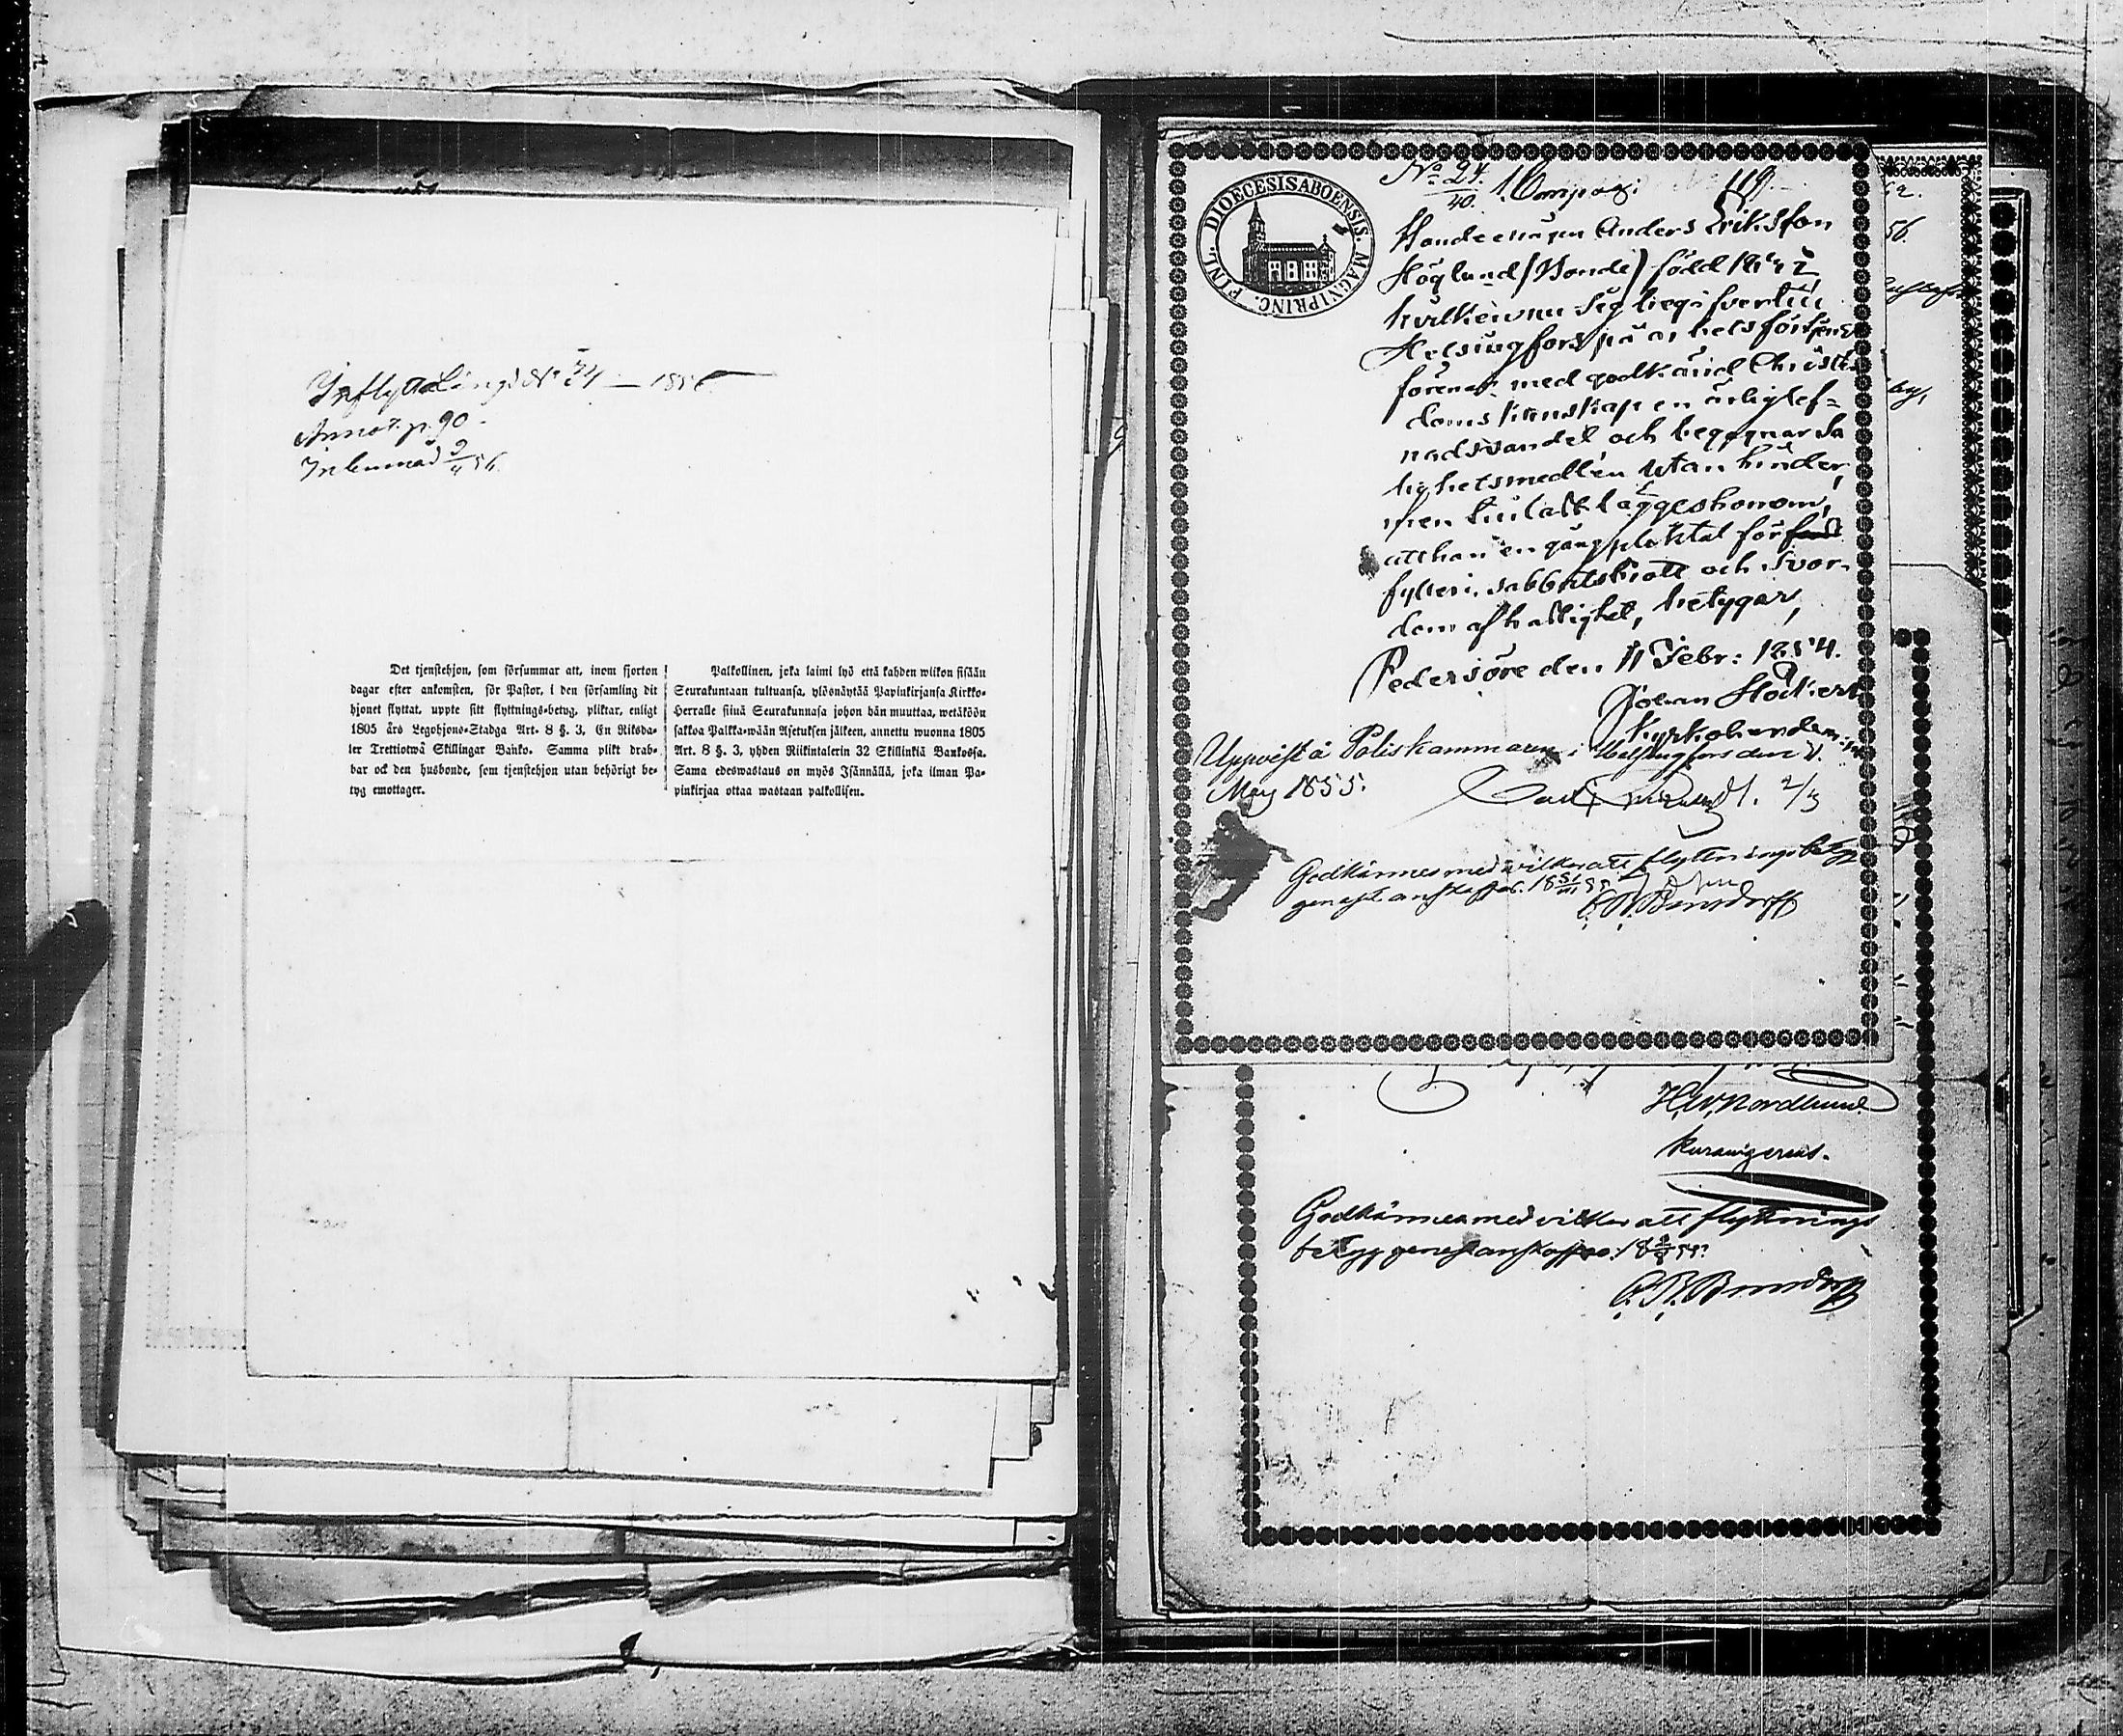 Inflyttn. Längd No 24 — 1856
Annot. p. 90.
Inkommad 9/4 56.
Det tjenstehjon, som försummar att, inom fjorton
dagar efter ankomsten, för Pastor, i den församling dit
hjonet flyttat, uppte sitt flyttnings-betyg, pliktar, enligt
1805 års Legohjons-Stadga Art. 8 §. 3, En Riksda-
ler Trettiotwå Skillingar Banko. Samma plikt drab-
bar ock den husbonde, som tjenstehjon utan behörigt be-
tyg emottager.
Palkollinen, joka laimi lyö että kahden wiikon sisään
Seurakuntaan tultuansa, ylösnäytää Papinkirjansa Kirkko-
Herralle siinä Seurakunnasa johon hän muuttaa, wetäköön
sakkoa Palkka-wään Asetuksen jälkeen, annettu wuonna 1805
Art. 8 §. 3, yhden Riikintalerin 32 Skillinkiä Bankossa.
Sama edeswastaus on myös Isännällä, joka ilman Pa-
pinkirjaa ottaa wastaan palkollisen.
FINL. DIOECESIS ABOENSIS. MAGNI PRINC.
No 24. 119.
40.
Bondemågen Anders Eriksson
Höglund (Bonde) född
hvilken nu sig begifver till
Helsingfors på arbetsförtjenst
förenar med godkänd Christen-
domskunskap en ärlig lef-
nadsvandel och begagnar Sa-
lighetsmedlen utan hinder,
men tillägges honom,
att han en gång pliktat för
fylleri, sabbatsbrott och svor-
dom af hastighet, betygar,
Pedersöre den 11 Febr: 1854.
Johan Hockert
Kyrkoherden
Uppvist å Poliskammaren i Helsingfors den 21.
Maj 1855.
Godkännes med vilkor att flyttningsbetyg
genast anskaffas.
C. R. Bensdorff
H. W. Nordlund
Godkännes med vilkor att flyttnings
betyg genast anskaffas.
C. R. Bensdorff